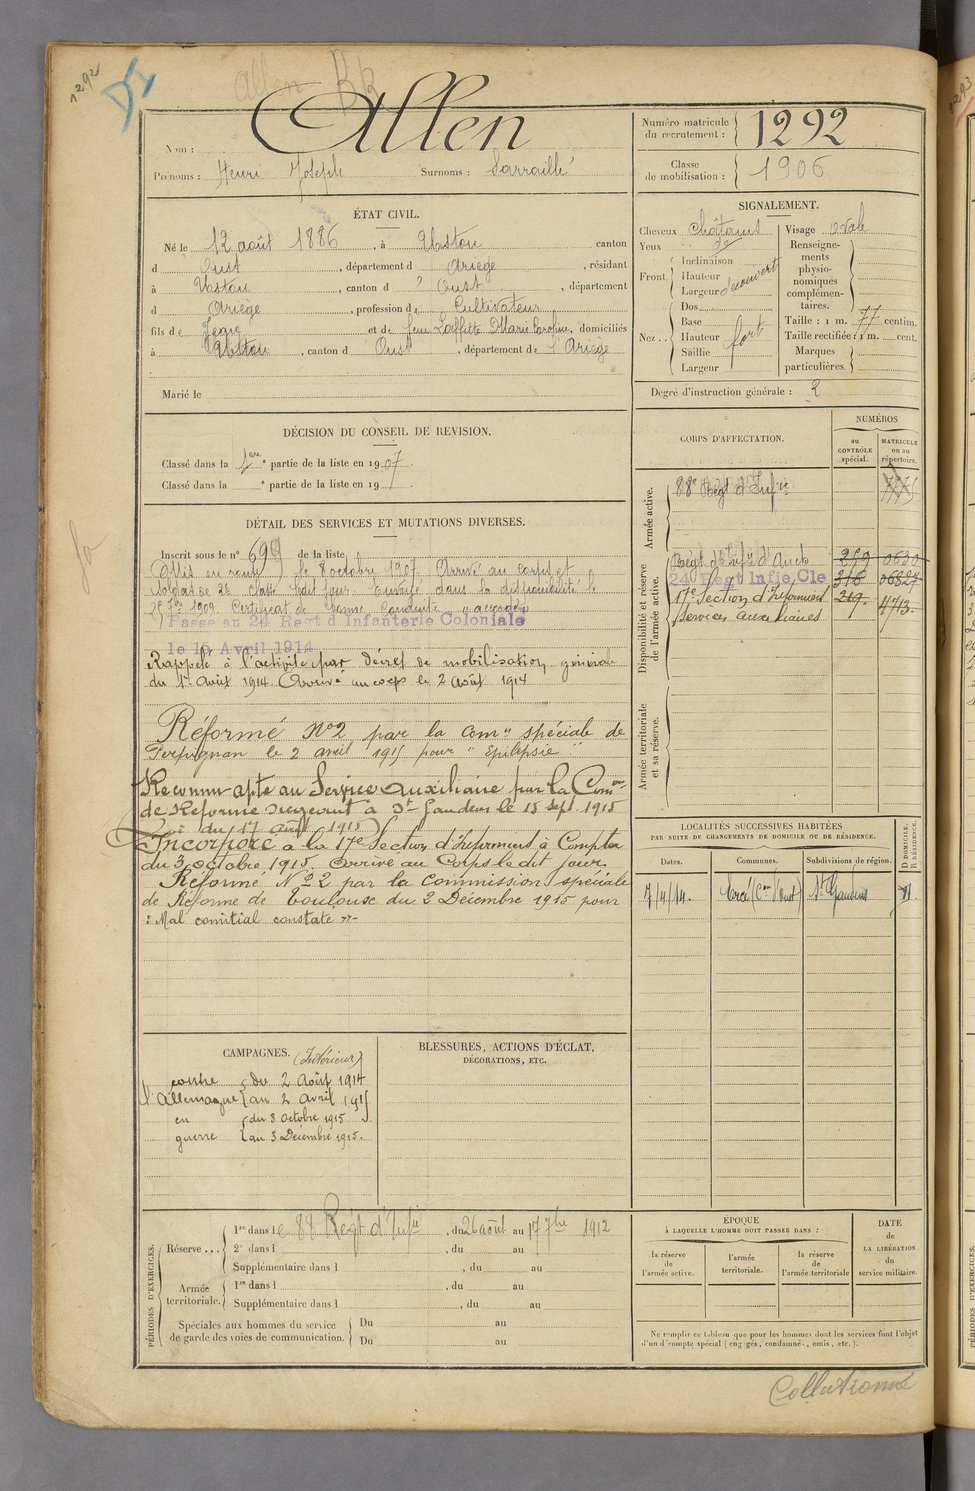 1292
Allen
Nom : Allen
Prénoms : Henri Joseph Surnoms : Sarraillé
Numéro matricule du recrutement : 1292
Classe de mobilisation : 1906
ÉTAT CIVIL.
Né le 12 août 1886, à Ustou canton
d Oust, département d Ariège, résidant
à Ustou, canton d Oust, département
d Ariège, profession de Cultivateur
fils de et de domiciliés
à Ustou, canton d Oust, département de l'Ariège
Marié le
SIGNALEMENT.
Cheveux châtains Visage oval
Yeux
Front. Inclinaison
Hauteur
Largeur découvert
Nez.. Dos
Base
Hauteur fort
Saillie
Largeur
Renseignements physionomiques complémentaires.
Taille : 1 m. 77 centim.
Taille rectifiée : 1 m. cent.
Marques particulières.
Degré d'instruction générale : 2
DÉCISION DU CONSEIL DE REVISION.
Classé dans la 1ere partie de la liste en 1907.
Classé dans la e partie de la liste en 19 .
CORPS D'AFFECTATION.
NUMÉROS
au CONTRÔLE spécial.
MATRICULE ou au répertoire.
Armée active.
88e Régt d'Infie
Disponibilité et réserve de l'armée active.
Régt d'Infie d'Auch 259
24 Régt Infie Cle 316
17e Section d'Infirmiers 219. 4713.
Services auxiliaires
Armée territoriale et sa réserve.
DÉTAIL DES SERVICES ET MUTATIONS DIVERSES.
Inscrit sous le n° 699 de la liste
le 8 octobre 1907. Arrivé au corps et
soldat de 2e classe ledit jour. Envoyé dans la disponibilité le
25 7bre 1909. Certificat de bonne conduite "accordé"
Passé au 24 Régt d'Infanterie Coloniale
le 15 Avril 1914
Rappelé à l'activité par décret de mobilisation générale
du 1er Août 1914 Arrivé au corps le 2 août 1914
Réformé N°2 par la Comon spéciale de
Perpignan le 2 avril 1915 pour "Epilepsie"
Reconnu apte au Service Auxiliaire par la Comon
de Réforme siégeant à St-Gaudens le 15 Sept 1915
(Loi du 17 août 1915)
Incorporé à la 17e Section d'Infirmiers à Compter
du 3 octobre 1915. Arrivé au Corps le dit jour.
Réformé N° 2 par la Commission spéciale
de Réforme de Toulouse du 2 Décembre 1915 pour
: Mal comitial constaté
LOCALITÉS SUCCESSIVES HABITÉES
PAR SUITE DE CHANGEMENTS DE DOMICILE OU DE RÉSIDENCE.
Dates. Communes. Subdivisions de région. D DOMICILE. R RÉSIDENCE.
7/4/14. Ercé (Con d'Oust) St Gaudens D.
CAMPAGNES. (Intérieur)
contre du 2 Août 1914
l'Allemagne au 2 Avril 1915
en du 3 Octobre 1915
guerre au 3 Décembre 1915.
BLESSURES, ACTIONS D'ÉCLAT,
DÉCORATIONS, ETC.
PÉRIODES D'EXERCICES.
Réserve ... 1re dans le 88 Régt d'Infie, du 26 août au 17 7bre 1912
2e dans l , du au
Supplémentaire dans l , du au
Armée territoriale. 1re dans l , du au
Supplémentaire dans l , du au
Spéciales aux hommes du service de garde des voies de communication. Du au
Du au
ÉPOQUE
À LAQUELLE L'HOMME DOIT PASSER DANS :
la réserve de l'armée active.
l'armée territoriale.
la réserve de l'armée territoriale
DATE de LA LIBÉRATION du service militaire.
Ne remplir ce tableau que pour les hommes dont les services font l'objet
d'un décompte spécial (engagés, condamnés, omis, etc.).
Collationné